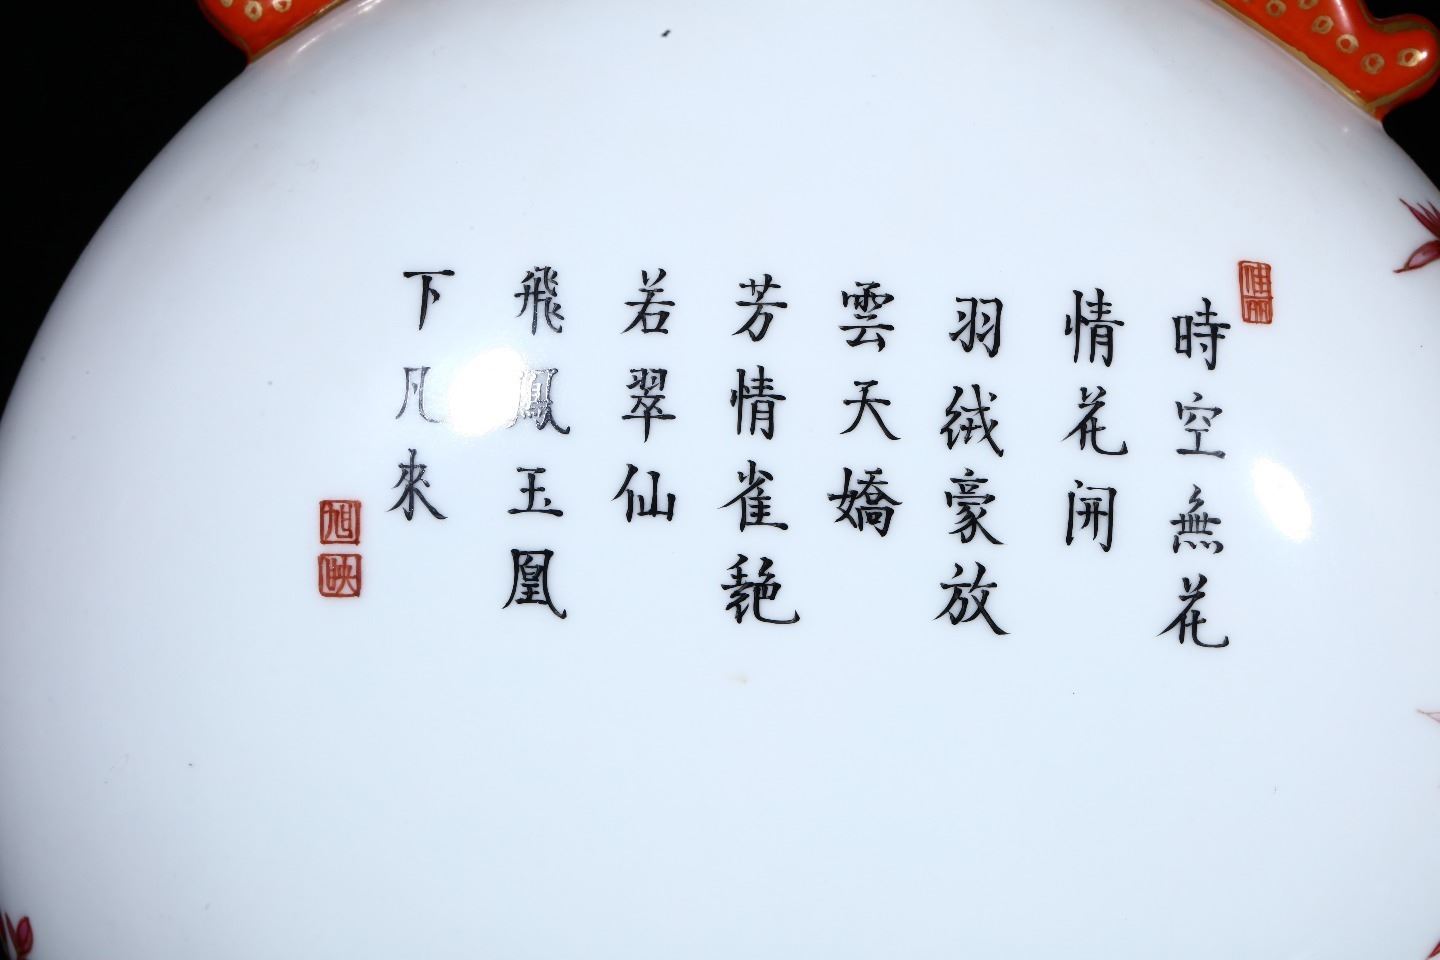 時空無花
情花開
羽絨豪放
雲天嬌
芳情雀艷
若翠仙
飛鳳玉凰
下凡來
旭
映